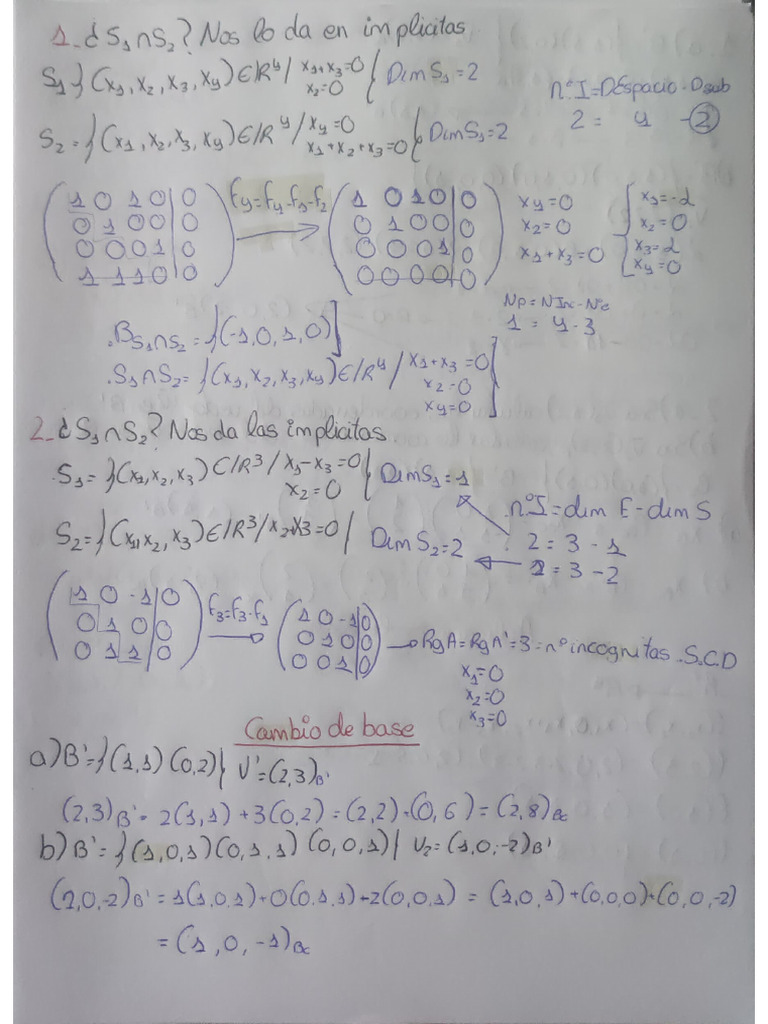 1. ¿S₁∩S₂? Nos lo da en implicitas
S₁ {(x₁, x₂, x₃, x₄) ∈ ℝ⁴ / x₁+x₃=0 x₂=0 } Dim S₁=2
nºI = DEspacio - Dsub
2 = 4 - 2
S₂ = {(x₁, x₂, x₃, x₄) ∈ ℝ⁴ / x₄=0 x₁+x₂+x₃=0 } Dim S₁=2
(1 0 1 0 | 0) F₄=F₄-F₁-F₂ (1 0 1 0 | 0) x₄=0 { x₁=-λ
(0 1 0 0 | 0) → (0 1 0 0 | 0) x₂=0 x₂=0
(0 0 0 1 | 0) (0 0 0 1 | 0) x₁+x₃=0 x₃=λ
(1 1 1 0 | 0) (0 0 0 0 | 0) x₄=0
Np = NInc - Nºe
1 = 4 - 3
.B S₁∩S₂ = {(-1, 0, 1, 0)}
.S₁∩S₂ = {(x₁, x₂, x₃, x₄) ∈ ℝ⁴ / x₁+x₃=0 x₂=0 x₄=0 }
2. ¿S₁∩S₂? Nos da las implicitas
.S₁ = {(x₁, x₂, x₃) ⊂ ℝ³ / x₁-x₃=0 x₂=0 } Dim S₁=1
.nºI = dim E - dim S
S₂ = {(x₁, x₂, x₃) ∈ ℝ³ / x₂+x₃=0 } Dim S₂=2
2 = 3 - 1
1 = 3 - 2
(1 0 -1 | 0) F₃=F₃-F₁ (1 0 -1 | 0)
(0 1 0 | 0) → (0 1 0 | 0) → RgA = RgA' = 3 = nº incognitas .S.C.D
(0 1 1 | 0) (0 0 1 | 0)
x₁=0
x₂=0
x₃=0
Cambio de base
a) B' = {(1,1) (0,2)} U' = (2,3)B'
(2,3)B' = 2(1,1) + 3(0,2) = (2,2) + (0,6) = (2,8)Bc
b) B' = {(1,0,1) (0,1,1) (0,0,1)} U₂ = (1,0,-2)B'
(1,0,-2)B' = 1(1,0,1) + 0(0,1,1) - 2(0,0,1) = (1,0,1) + (0,0,0) + (0,0,-2)
= (1,0,-1)Bc